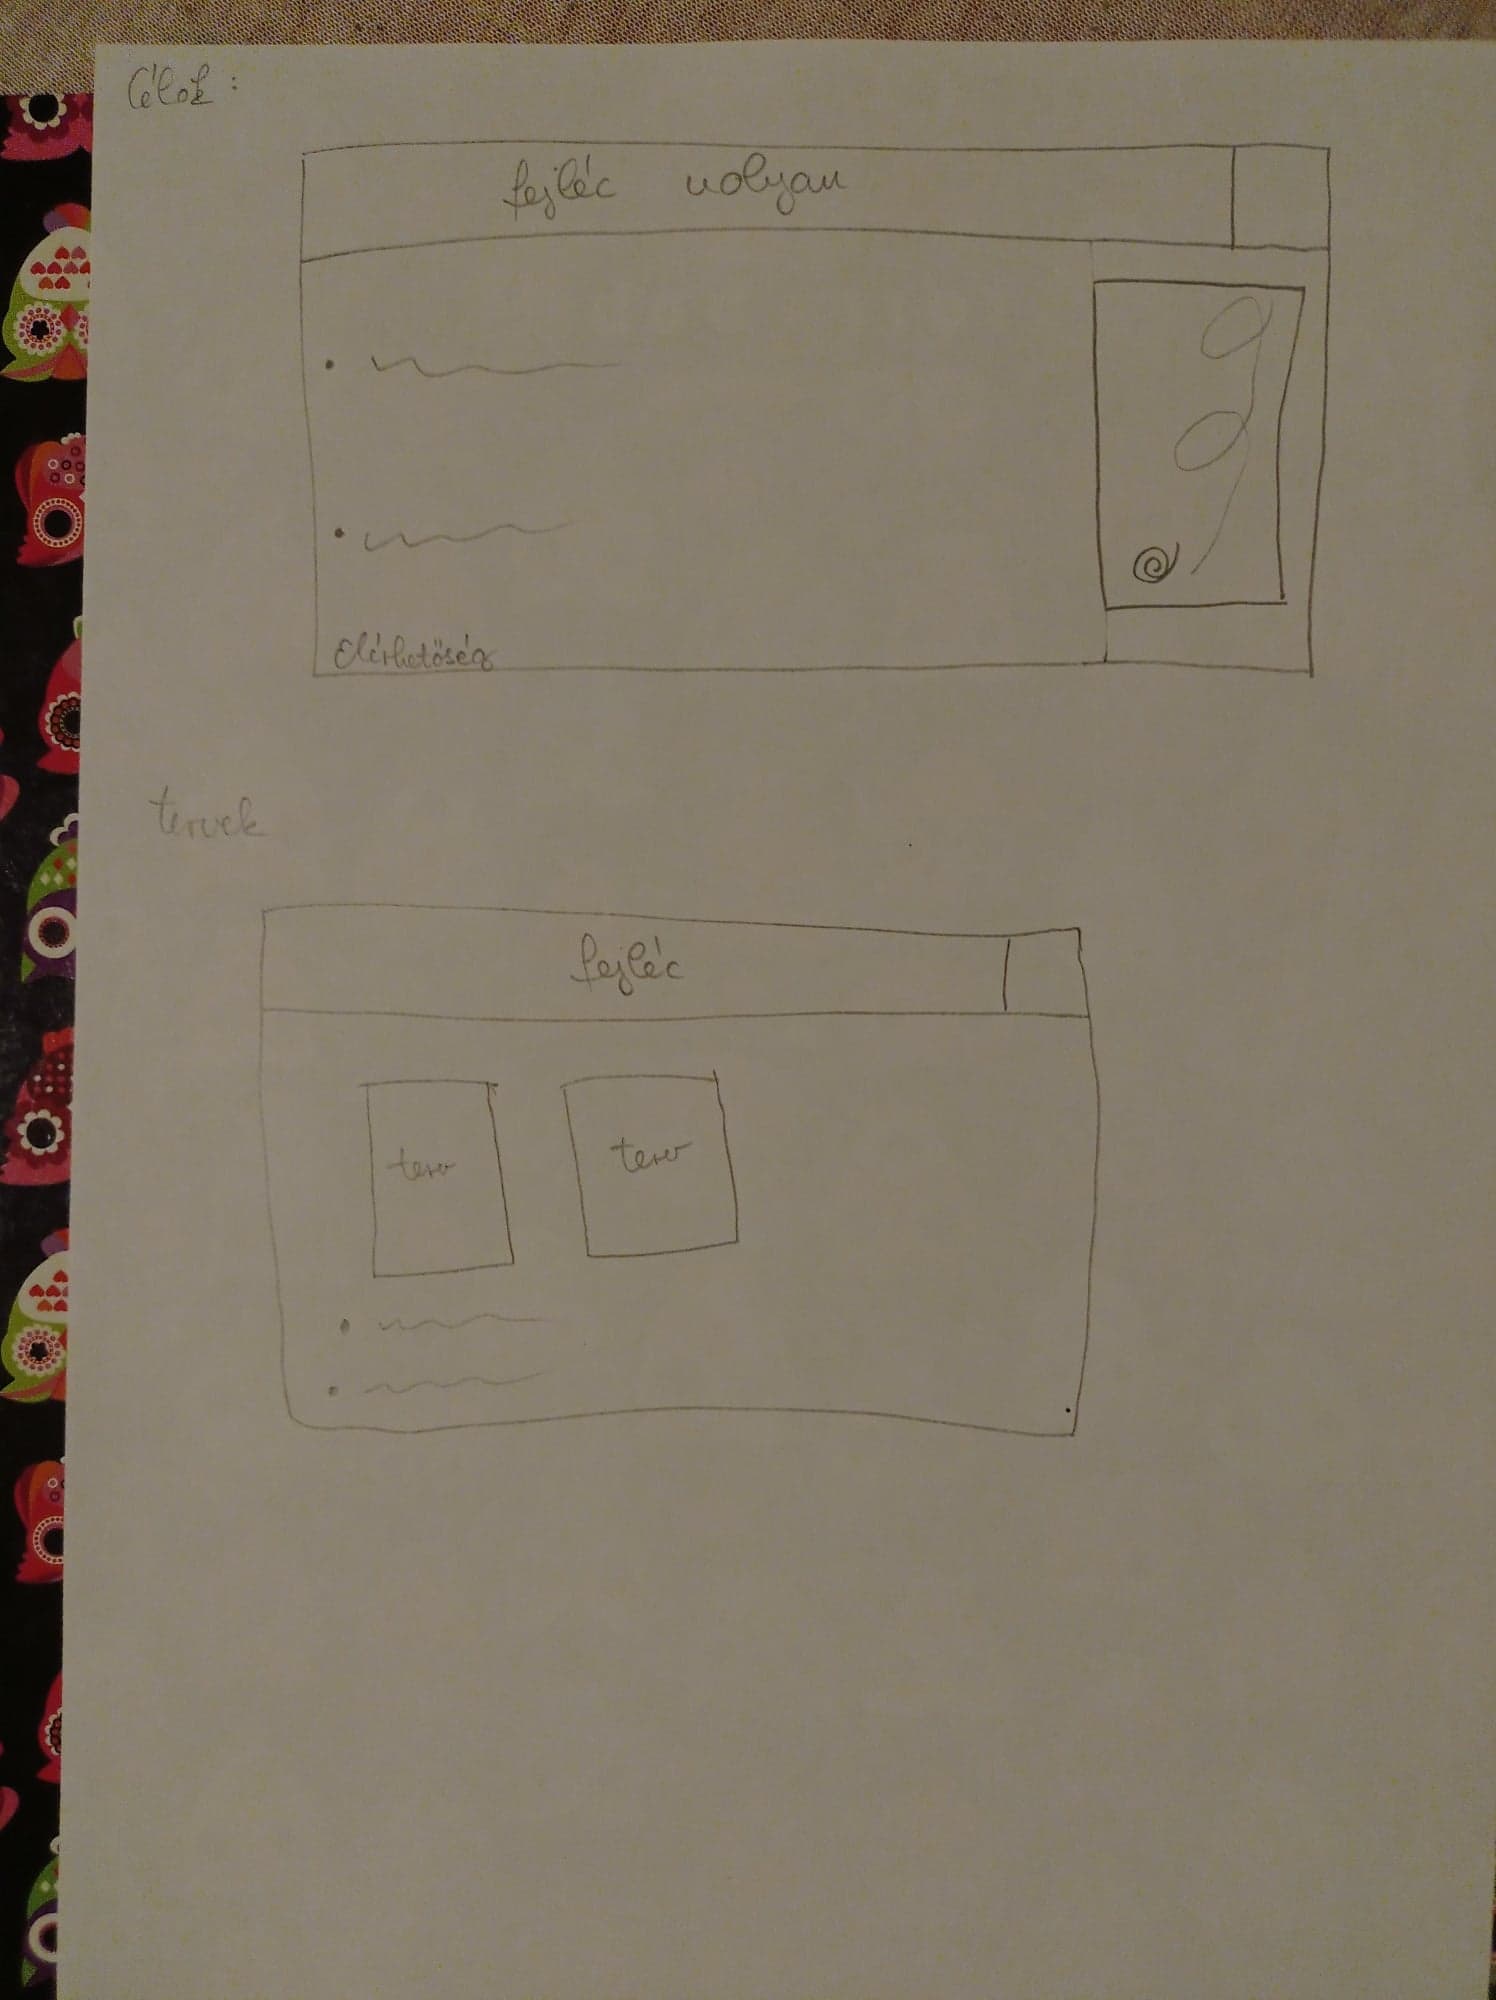 Célok :
fejléc uolyan
Elérhetőség
tervek
fejléc
terv terv